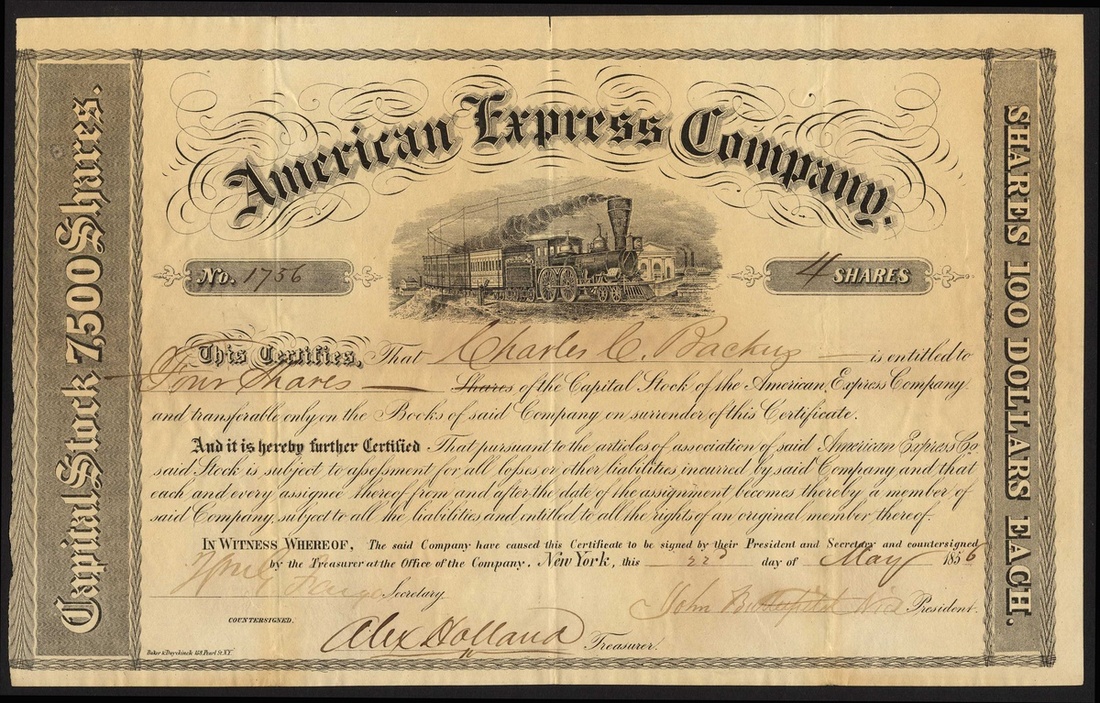 American Express Company.
Capital Stock 7500 Shares.
SHARES 100 DOLLARS EACH.
No. 1756
4 SHARES
This Certifies, That Charles C. Backus is entitled to
Four Shares Shares of the Capital Stock of the American Express Company
and transferable only on the Books of said Company on surrender of this Certificate.
And it is hereby further Certified That pursuant to the articles of association of said American Express Co
said Stock is subject to assessment for all losses or other liabilities incurred by said Company and that
each and every assignee thereof from and after the date of the assignment becomes thereby a member of
said Company, subject to all the liabilities and entitled to all the rights of an original member thereof.
IN WITNESS WHEREOF, The said Company have caused this Certificate to be signed by their President and Secretary and countersigned
by the Treasurer at the Office of the Company, New York, this 22d day of May 1856
Wm G Fargo Secretary
John Butterfield President.
COUNTERSIGNED.
Alex Holland Treasurer.
Baker & Duyckinck 158 Pearl St. N.Y.